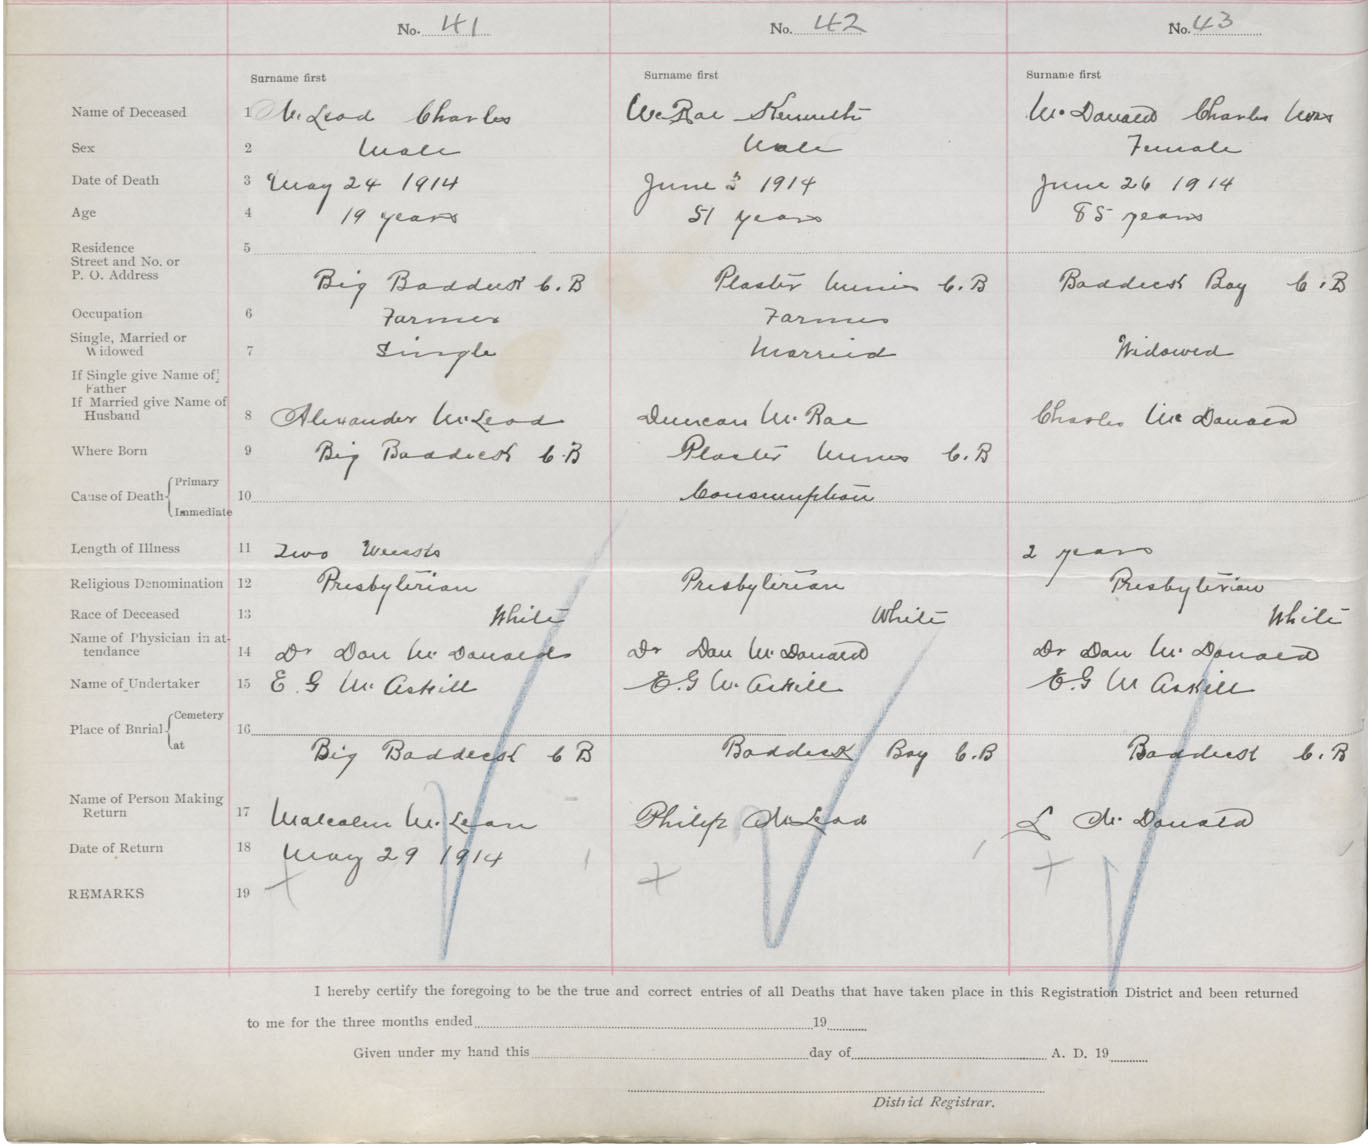 No. 41 No. 42 No. 43
Surname first Surname first Surname first
Name of Deceased 1 McLeod Charles McRae Kenneth McDonald Charles Mrs
Sex 2 Male Male Female
Date of Death 3 May 24 1914 June 3 1914 June 26 1914
Age 4 19 years 51 years 85 years
Residence 5
Street and No. or
P. O. Address Big Baddeck C. B Plaster Mines C. B Baddeck Bay C. B
Occupation 6 Farmer Farmer
Single, Married or
Widowed 7 Single Married Widowed
If Single give Name of
Father
If Married give Name of
Husband 8 Alexander McLeod Duncan McRae Charles McDonald
Where Born 9 Big Baddeck C. B Plaster Mines C. B
Cause of Death Primary
10 Consumption
Immediate
Length of Illness 11 Two Weeks 2 years
Religious Denomination 12 Presbyterian Presbyterian Presbyterian
Race of Deceased 13 White White White
Name of Physician in at-
tendance 14 Dr Dan McDonald Dr Dan McDonald Dr Dan McDonald
Name of Undertaker 15 E. G McAskill E. G McAskill E. G McAskill
Place of Burial Cemetery
16
at Big Baddeck C B Baddeck Bay C. B Baddeck C. B
Name of Person Making
Return 17 Malcolm McLean Philip McLeod McDonald
Date of Return 18 May 29 1914
REMARKS 19
I hereby certify the foregoing to be the true and correct entries of all Deaths that have taken place in this Registration District and been returned
to me for the three months ended 19
Given under my hand this day of A. D. 19
District Registrar.